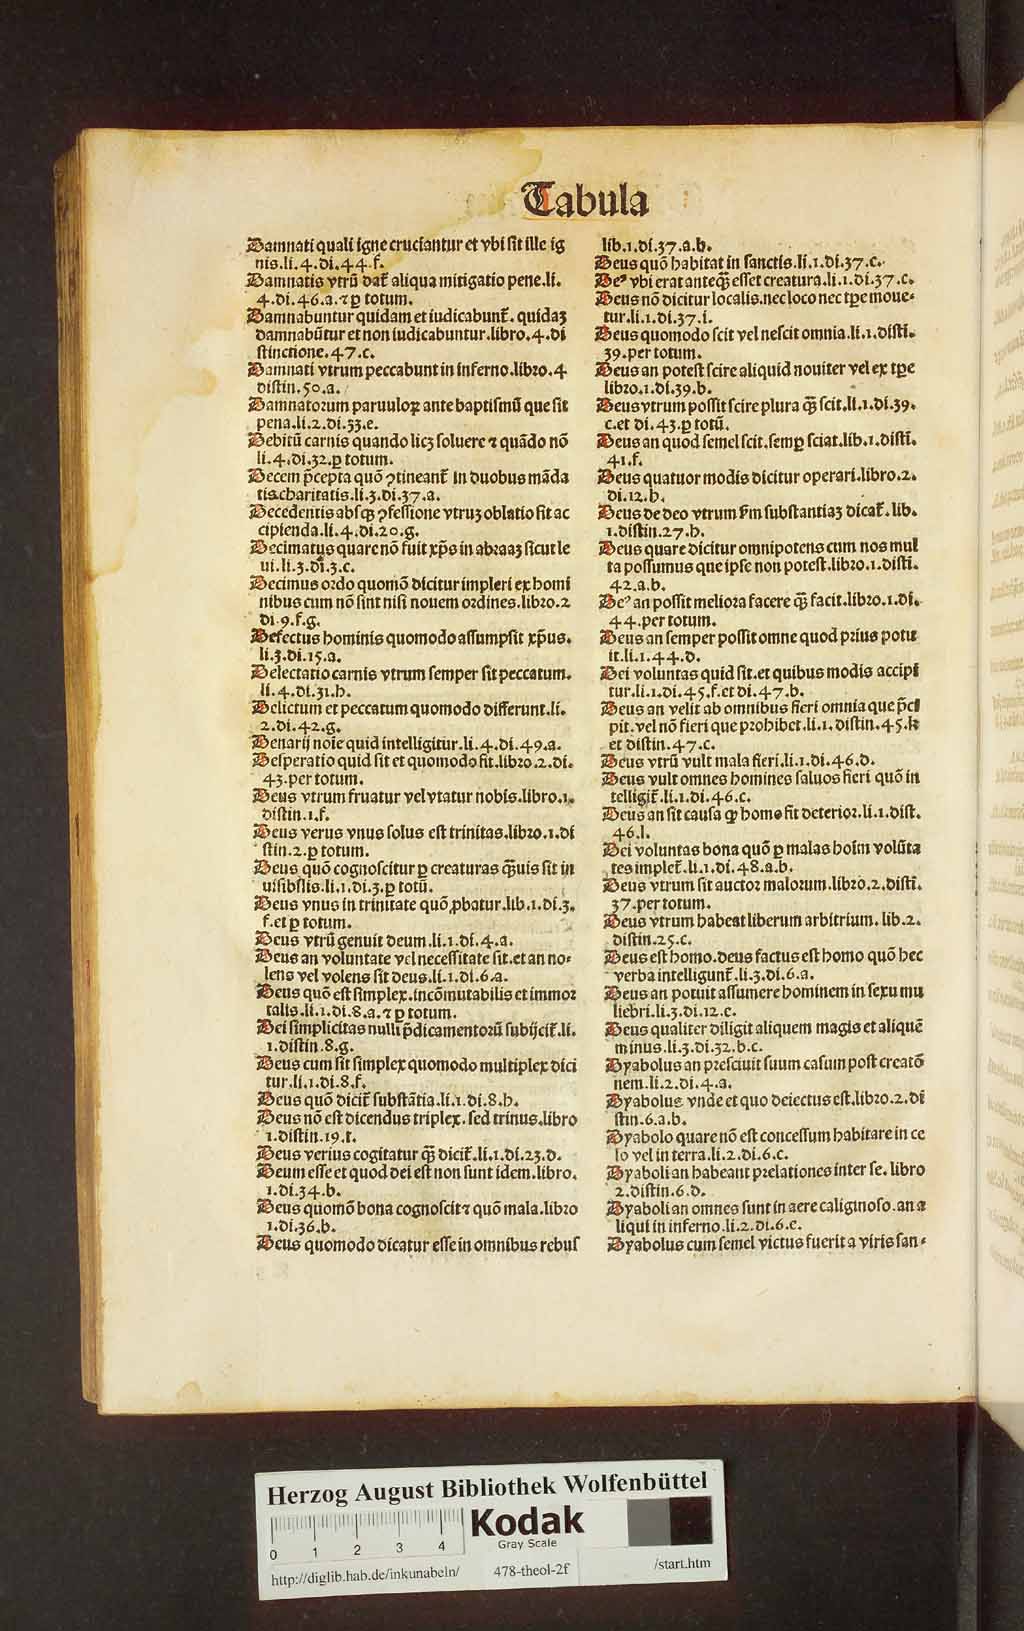 Tabula
Damnati quali igne cruciantur et vbi sit ille ig
nis.li.4.di.44.f.
Damnatis vtrū dat᷑ aliqua mitigatio pene.li.
4.di.46.a.⁊ ꝑ totum.
Damnabuntur quidam et iudicabunt᷑. quidaꝫ
damnabūtur et non iudicabuntur.libro.4.di
stinctione.47.c.
Damnati vtrum peccabunt in inferno.libro.4
distin.50.a.
Damnatorum paruuloꝝ ante baptismū que sit
pena.li.2.di.33.e.
Debitū carnis quando licꝫ soluere ⁊ quādo nō
li.4.di.32.ꝑ totum.
Decem p̄cepta quō ꝯtineant᷑ in duobus māda
tis charitatis.li.3.di.37.a.
Decedentis absqꝫ ꝯfessione vtruꝫ oblatio sit ac
cipienda.li.4.di.20.g.
Decimatus quare nō fuit xp̄s in abraaꝫ sicut le
ui.li.3.di.3.c.
Decimus ordo quomō dicitur impleri ex homi
nibus cum nō sint nisi nouem ordines.libro.2
di.9.f.g.
Defectus hominis quomodo assumpsit xp̄us.
li.3.di.15.a.
Delectatio carnis vtrum semper sit peccatum.
li.4.di.31.h.
Delictum et peccatum quomodo differunt.li.
2.di.42.g.
Denarij noīe quid intelligitur.li.4.di.49.a.
Desperatio quid sit et quomodo fit.libro.2.di.
43.per totum.
Deus vtrum fruatur vel vtatur nobis.libro.1.
distin.1.f.
Deus verus vnus solus est trinitas.libro.1.di
stin.2.ꝑ totum.
Deus quō cognoscitur ꝑ creaturas qꝫuis sit in
uisibilis.li.1.di.3.ꝑ totū.
Deus vnus in trinitate quō ꝓbatur.lib.1.di.3.
f.et ꝑ totum.
Deus vtrū genuit deum.li.1.di.4.a.
Deus an voluntate vel necessitate sit.et an no-
lens vel volens sit deus.li.1.di.6.a.
Deus quō est simplex.incōmutabilis et immor
talis.li.1.di.8.a.⁊ ꝑ totum.
Dei simplicitas nulli p̄dicamentorū subijcit᷑.li.
1.distin.8.g.
Deus cum sit simplex quomodo multiplex dici
tur.li.1.di.8.f.
Deus quō dicit᷑ substātia.li.1.di.8.h.
Deus nō est dicendus triplex.sed trinus.libro
1.distin.19.t.
Deus verius cogitatur qꝫ dicit᷑.li.1.di.23.d.
Deum esse et quod dei est non sunt idem.libro.
1.di.34.b.
Deus quomō bona cognoscit ⁊ quō mala.libro
1.di.36.b.
Deus quomodo dicatur esse in omnibus rebus
lib.1.di.37.a.b.
Deus quō habitat in sanctis.li.1.di.37.c.
Deꝰ vbi erat anteqꝫ esset creatura.li.1.di.37.c.
Deus nō dicitur localis.nec loco nec tp̄e moue-
tur.li.1.di.37.i.
Deus quomodo scit vel nescit omnia.li.1.disti.
39.per totum.
Deus an potest scire aliquid nouiter vel ex tp̄e
libro.1.di.39.b.
Deus vtrum possit scire plura qꝫ scit.li.1.di.39.
c.et di.43.ꝑ totū.
Deus an quod semel scit.semꝑ sciat.lib.1.disti.
41.f.
Deus quatuor modis dicitur operari.libro.2.
di.12.h.
Deus de deo vtrum s̄m substantiaꝫ dicat᷑.lib.
1.distin.27.h.
Deus quare dicitur omnipotens cum nos mul
ta possumus que ipse non potest.libro.1.disti.
42.a.b.
Deꝰ an possit meliora facere qꝫ facit.libro.1.di.
44.per totum.
Deus an semper possit omne quod prius potu
it.li.1.44.d.
Dei voluntas quid sit.et quibus modis accipi
tur.li.1.di.45.f.et di.47.b.
Deus an velit ab omnibus fieri omnia que p̄ci
pit.vel nō fieri que prohibet.li.1.distin.45.k
et distin.47.c.
Deus vtrū vult mala fieri.li.1.di.46.d.
Deus vult omnes homines saluos fieri quō in
telligit᷑.li.1.di.46.c.
Deus an sit causa qꝙ homo fit deterior.li.1.dist.
46.l.
Dei voluntas bona quō ꝑ malas hoīm volūta
tes implet᷑.li.1.di.48.a.b.
Deus vtrum sit auctor malorum.libro.2.disti.
37.per totum.
Deus vtrum habeat liberum arbitrium.lib.2.
distin.25.c.
Deus est homo.deus factus est homo quō hec
verba intelligunt᷑.li.3.di.6.a.
Deus an potuit assumere hominem in sexu mu
liebri.li.3.di.12.e.
Deus qualiter diligit aliquem magis et aliquē
minus.li.3.di.32.b.c.
Dyabolus an presciuit suum casum post creatō
nem.li.2.di.4.a.
Dyabolus vnde et quo deiectus est.libro.2.di
stin.6.a.b.
Dyabolo quare nō est concessum habitare in ce
lo vel in terra.li.2.di.6.c.
Dyaboli an habeant prelationes inter se.libro
2.distin.6.d.
Dyaboli an omnes sunt in aere caliginoso.an a
liqui in inferno.li.2.di.6.e.
Dyabolus cum semel victus fuerit a viris san-
Herzog August Bibliothek Wolfenbüttel
0 1 2 3 4
Kodak
Gray Scale
http://diglib.hab.de/inkunabeln/ 478-theol-2f /start.htm